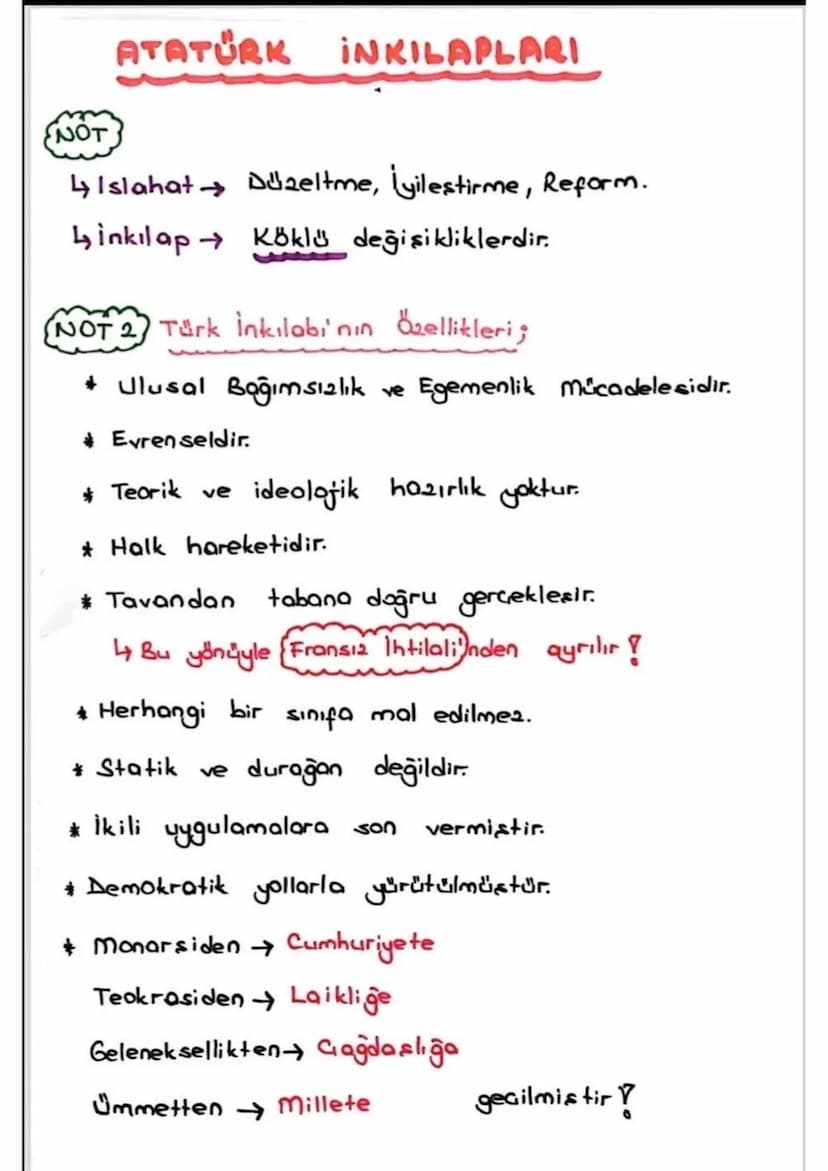 ATATÜRK İNKILAPLARI
NOT
↳ Islahat → Düzeltme, İyileştirme, Reform.
↳ İnkılap → Köklü değişikliklerdir.
NOT 2 Türk İnkılabı'nın Özellikleri;
* Ulusal Bağımsızlık ve Egemenlik mücadelesidir.
* Evrenseldir.
* Teorik ve ideolojik hazırlık yoktur.
* Halk hareketidir.
* Tavandan tabana doğru gerçekleşir.
↳ Bu yönüyle Fransız İhtilali'nden ayrılır!
* Herhangi bir sınıfa mal edilmez.
* Statik ve durağan değildir.
* İkili uygulamalara son vermiştir.
* Demokratik yollarla yürütülmüştür.
* Monarşiden → Cumhuriyete
Teokrasiden → Laikliğe
Geleneksellikten → Çağdaşlığa
Ümmetten → Millete geçilmiştir!